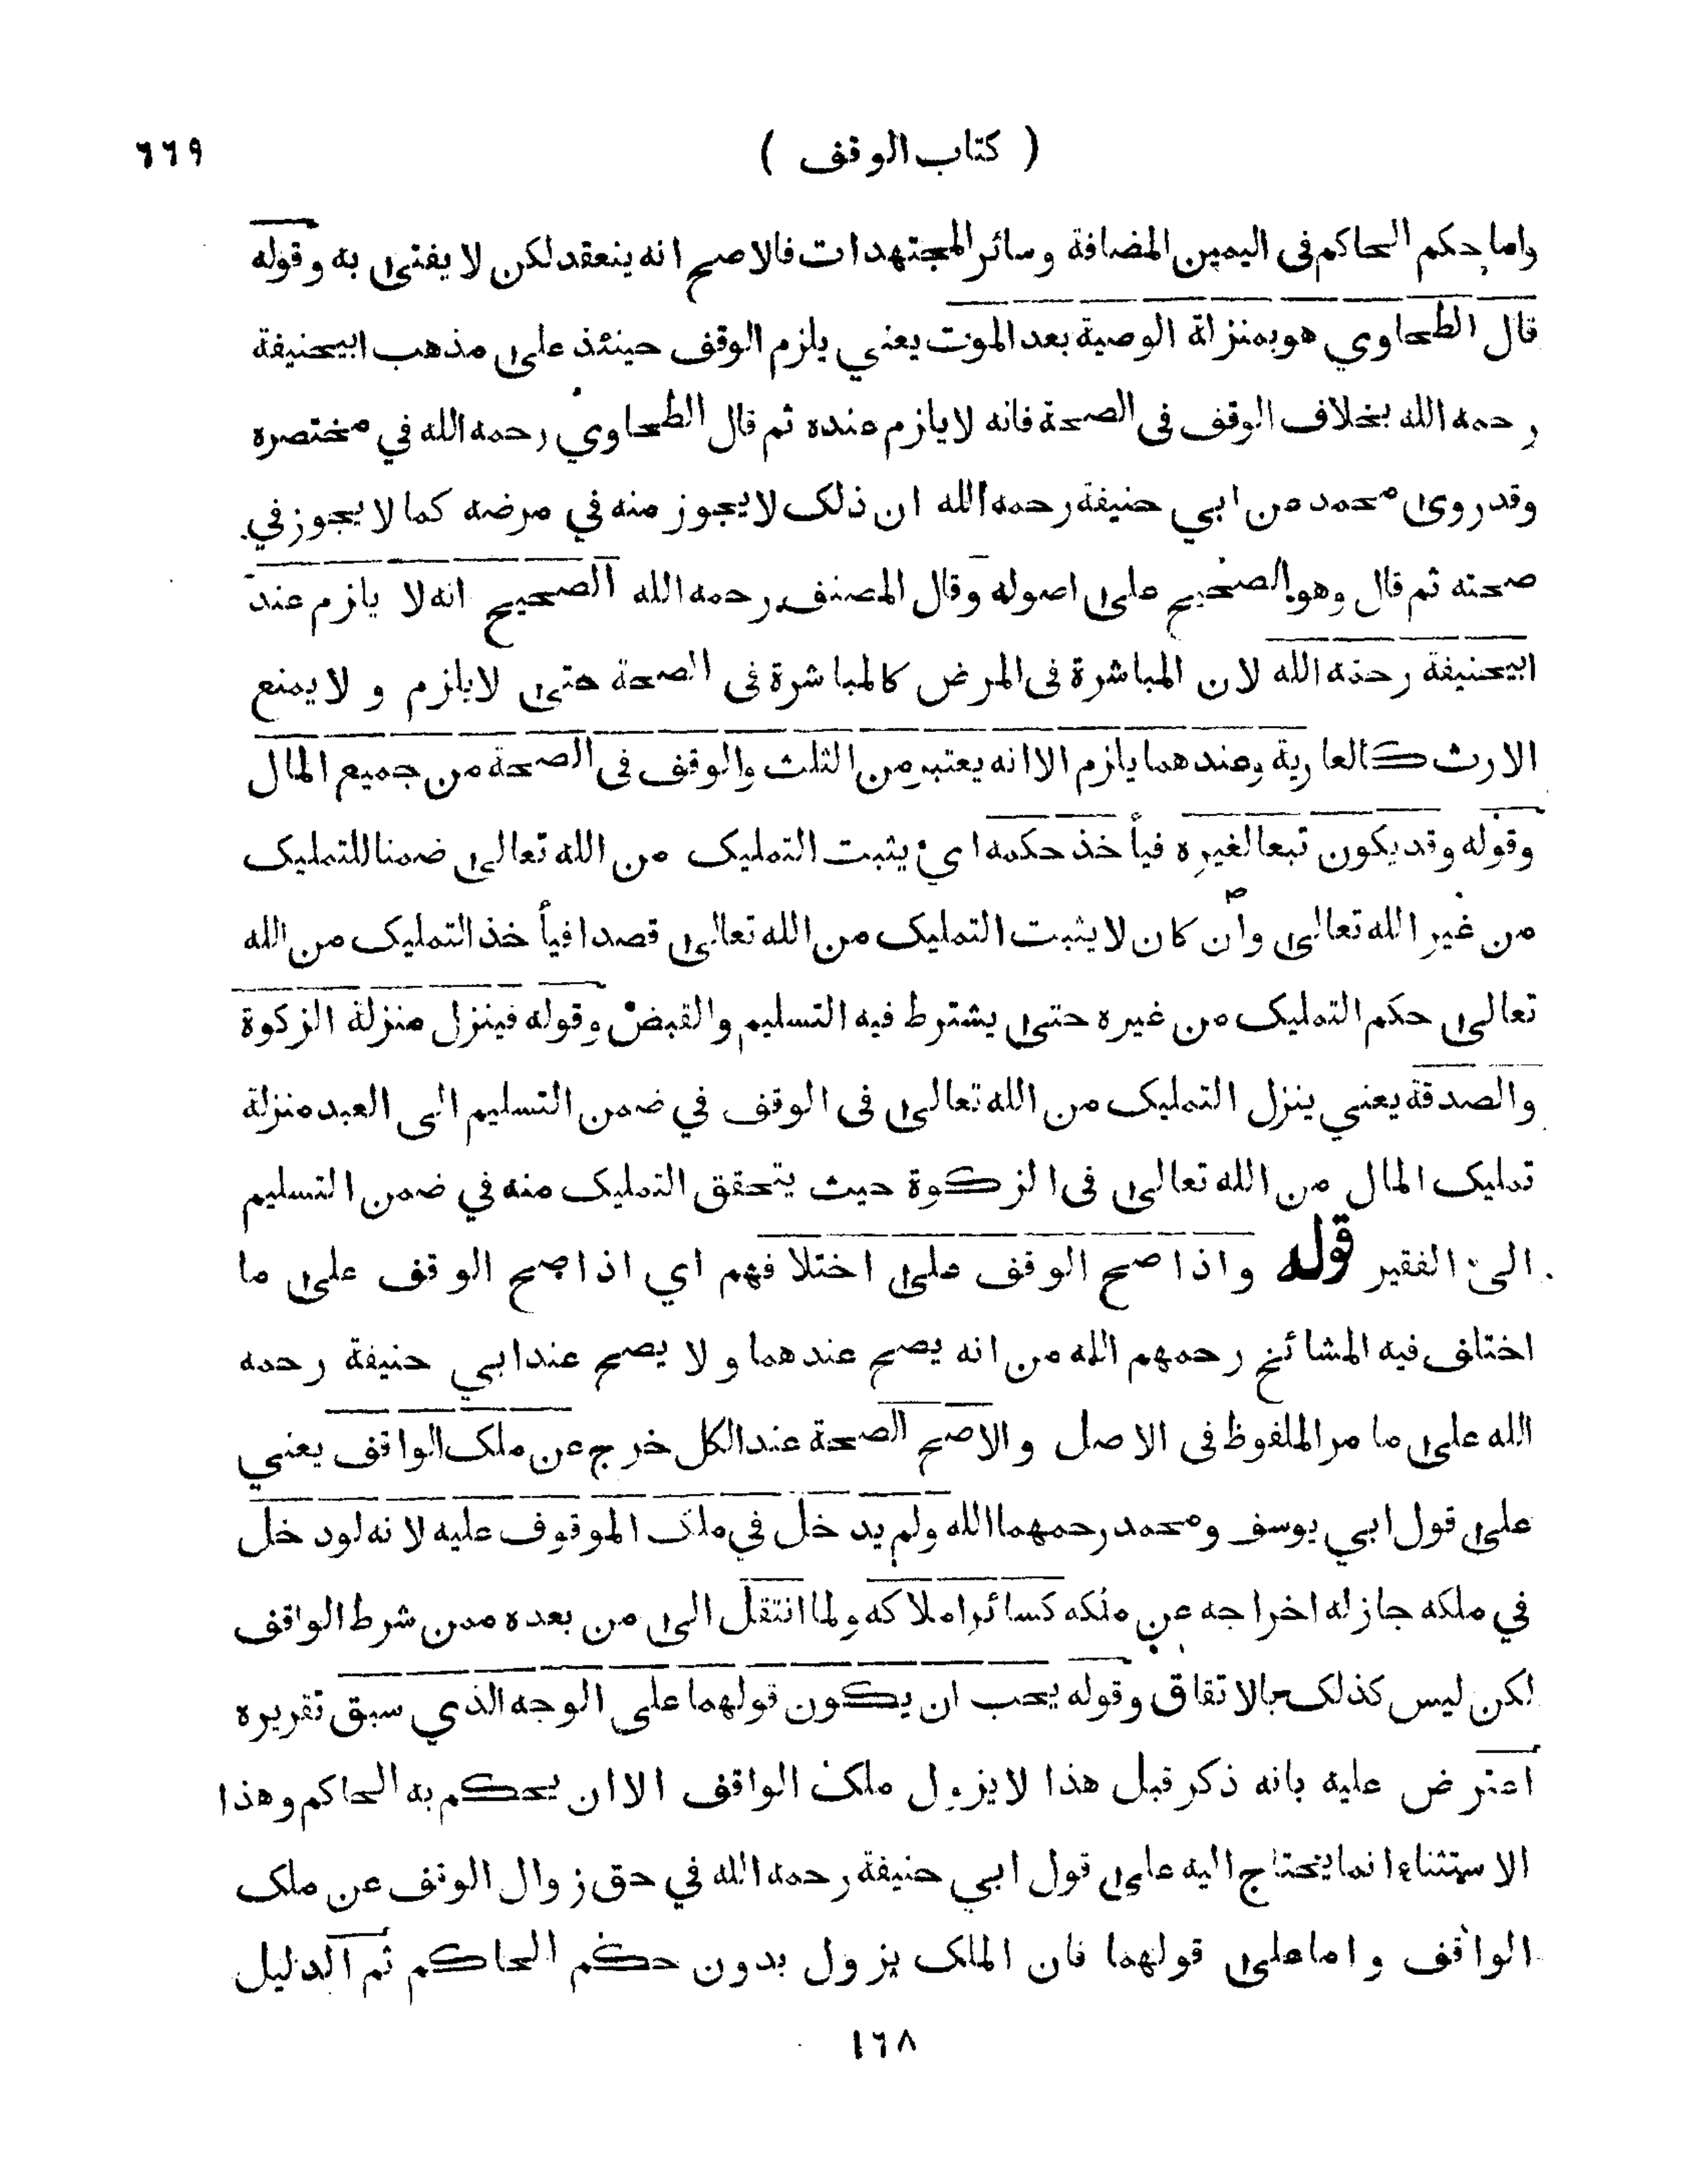 ( كتاب الوقف ) ٦٦٩
واما حكم الحاكم فى اليمين المضافة وسائر المجتهدات فالاصح انه ينعقد لكن لا يفتى به وقوله
قال الطحاوي هو بمنزلة الوصية بعد الموت يعني يلزم الوقف حينئذ على مذهب ابيحنيفة
رحمه الله بخلاف الوقف فى الصحة فانه لا يلزم عنده ثم قال الطحاوي رحمه الله في مختصره
وقد روى محمد عن ابي حنيفة رحمه الله ان ذلك لا يجوز منه في مرضه كما لا يجوز في
صحته ثم قال وهو الصحيح على اصوله وقال المصنف رحمه الله الصحيح انه لا يلزم عند
ابيحنيفة رحمه الله لان المباشرة فى المرض كالمباشرة فى الصحة حتى لا يلزم و لا يمنع
الارث كالعارية وعندهما يلزم الا انه يعتبر من الثلث والوقف فى الصحة من جميع المال
وقوله وقد يكون تبعا لغيره فيأخذ حكمه اي يثبت التمليك من الله تعالى ضمنا للتمليك
من غير الله تعالى وان كان لا يثبت التمليك من الله تعالى قصدا فيأخذ التمليك من الله
تعالى حكم التمليك من غيره حتى يشترط فيه التسليم والقبض وقوله فينزل منزلة الزكوة
والصدقة يعني ينزل التمليك من الله تعالى فى الوقف في ضمن التسليم الى العبد منزلة
تمليك المال من الله تعالى فى الزكوة حيث يتحقق التمليك منه في ضمن التسليم
الى الفقير قوله واذا صح الوقف على اختلافهم اي اذا صح الوقف على ما
اختلف فيه المشائخ رحمهم الله من انه يصح عندهما و لا يصح عند ابي حنيفة رحمه
الله على ما مر الملفوظ فى الاصل والاصح الصحة عند الكل خرج عن ملك الواقف يعني
على قول ابي يوسف ومحمد رحمهما الله ولم يدخل في ملك الموقوف عليه لانه لو دخل
في ملكه جاز له اخراجه عن ملكه كسائر املاكه ولما انتقل الى من بعده ممن شرط الواقف
لكن ليس كذلك بالاتفاق وقوله يجب ان يكون قولهما على الوجه الذي سبق تقريره
اعترض عليه بانه ذكر قبل هذا لا يزول ملك الواقف الا ان يحكم به الحاكم وهذا
الاستثناء انما يحتاج اليه على قول ابي حنيفة رحمه الله في حق زوال الوقف عن ملك
الواقف واما على قولهما فان الملك يزول بدون حكم الحاكم ثم الدليل
١٦٨